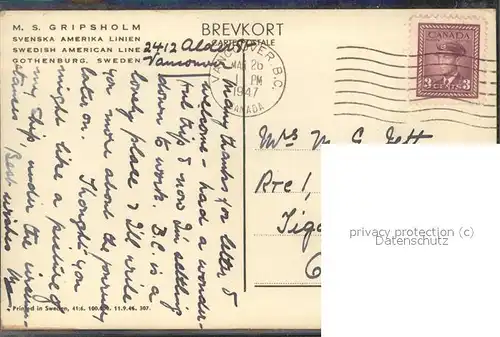 M. S. GRIPSHOLM
SVENSKA AMERIKA LINIEN
SWEDISH AMERICAN LINE
GOTHENBURG, SWEDEN
BREVKORT
CARTE POSTALE
2412 Alder St
Vancouver
VANCOUVER B.C.
MAR 26
PM
1947
CANADA
CANADA
3 CENTS 3
Many thanks for letter &
welcome - had a wonder-
ful trip & now I'm settling
down to work. B.C. is a
lovely place & I'll write
you more about the journey
later on. Thought you
might like a picture of
my ship, under the circum-
stances
Best wishes
Mrs M G
Rte 1,
Printed in Sweden. 41:6. 100. 11.9.46. 307.
privacy protection (c)
Datenschutz